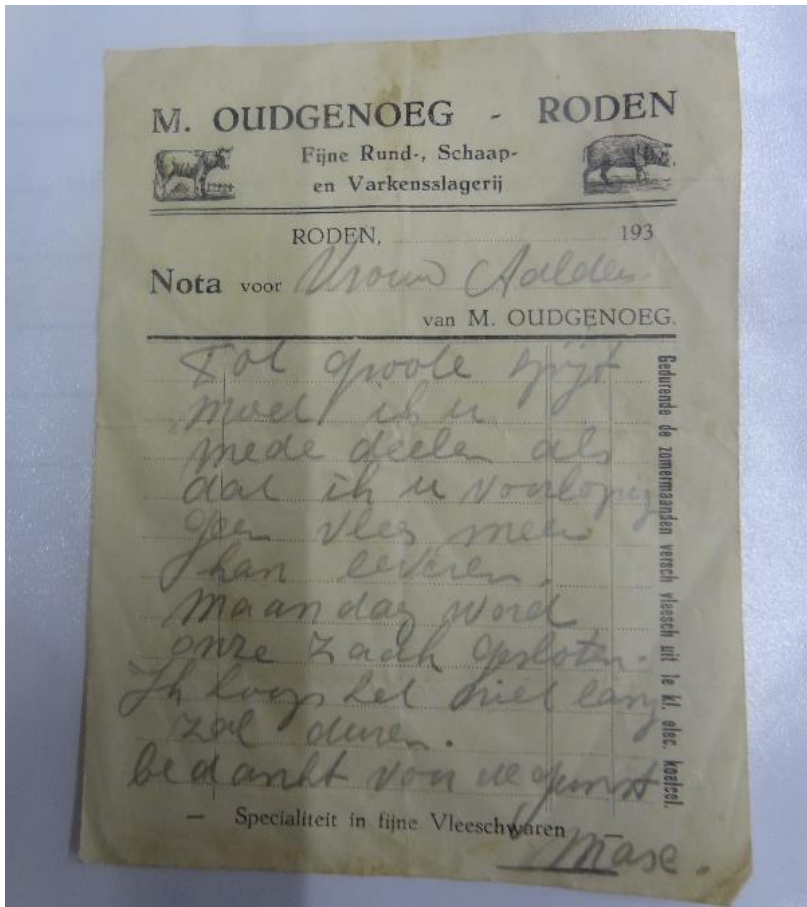 M. OUDGENOEG - RODEN
Fijne Rund-, Schaap-
en Varkensslagerij
RODEN, 193
Nota voor Vrouw Aalders
van M. OUDGENOEG.
Tot groote spijt
moet ik u
mede deelen als
dat ik u voorlopig
geen vlees meer
kan leveren.
Maandag word
onze zaak gesloten.
Ik hoop het niet lang
zal duren.
bedankt voor de gunst
Gedurende de zomermaanden versch vleesch uit 1e kl. elec. koelcel.
— Specialiteit in fijne Vleeschwaren